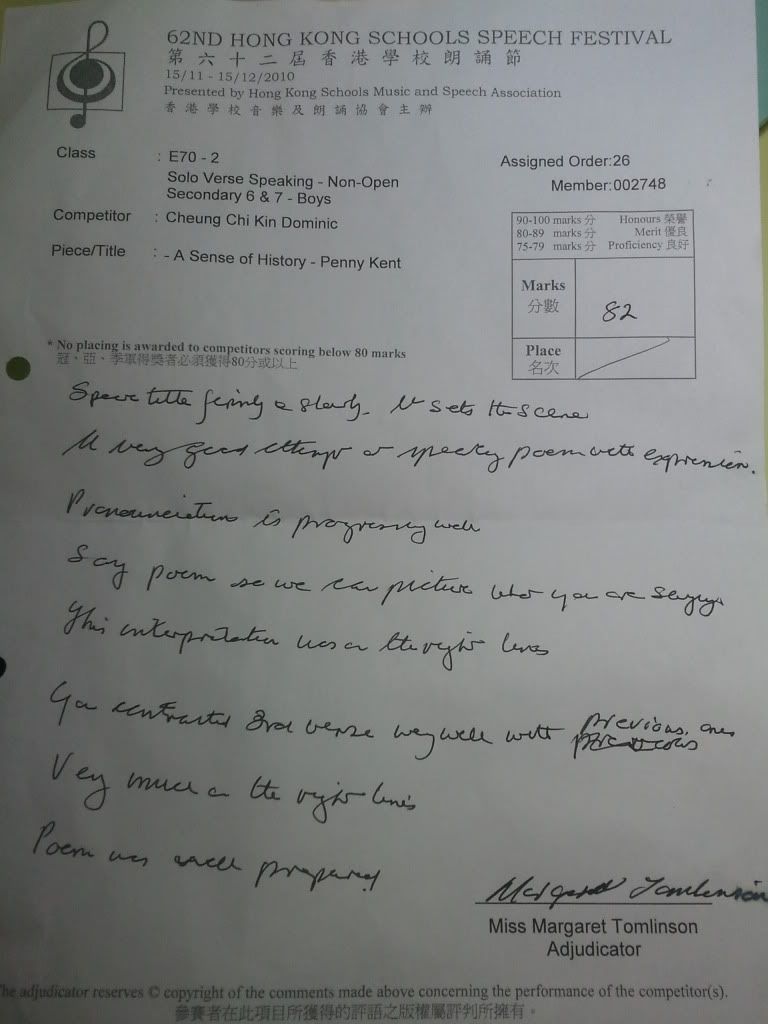 62ND HONG KONG SCHOOLS SPEECH FESTIVAL
第六十二屆香港學校朗誦節
15/11 - 15/12/2010
Presented by Hong Kong Schools Music and Speech Association
香港學校音樂及朗誦協會主辦
Class : E70 - 2
Solo Verse Speaking - Non-Open
Secondary 6 & 7 - Boys
Assigned Order:26
Member:002748
Competitor : Cheung Chi Kin Dominic
Piece/Title : - A Sense of History - Penny Kent
90-100 marks 分 Honours 榮譽
80-89 marks 分 Merit 優良
75-79 marks 分 Proficiency 良好
Marks
分數
82
Place
名次
* No placing is awarded to competitors scoring below 80 marks
冠、亞、季軍得獎者必須獲得80分或以上
title firmly & slowly. It sets the scene
A very good attempt at speaking poem with expression.
Pronounciation is progressing well
Say poem so we can picture what you are saying
This interpretation was on the right lines
You contrasted 3rd verse very well with previous ones
Very much on the right lines
Poem was well prepared
Margaret Tomlinson
Miss Margaret Tomlinson
Adjudicator
The adjudicator reserves © copyright of the comments made above concerning the performance of the competitor(s).
參賽者在此項目所獲得的評語之版權屬評判所擁有。